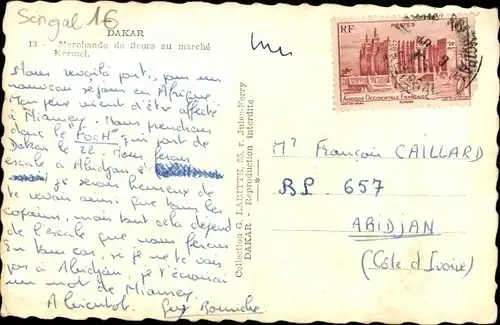 Senegal 16
DAKAR
13 - Marchande de fleurs au marché
Kermel.
Nous revoilà parti, pour un
nouveau séjour en Afrique
Mon père vient d'être affecté
à Niamey. Nous prendrons
donc le "FOCH" qui part de
Dakar le 22. Nous ferons
escale à Abidjan
je serais heureux de
te revoir ainsi que tous les
copains, mais tout cela dépend
de l'escale que nous ferons
En tous cas, si je ne te vois
pas à Abidjan, je t'écrirai
un mot de Niamey.
A bientôt. Guy
Collection G. LABITTE, 35, r. Jules-Ferry
DAKAR - Reproduction interdite
POSTES
AFRIQUE OCCIDENTALE FRANÇAISE
Mr François CAILLARD
BP. 657
ABIDJAN
(Côte d'Ivoire)